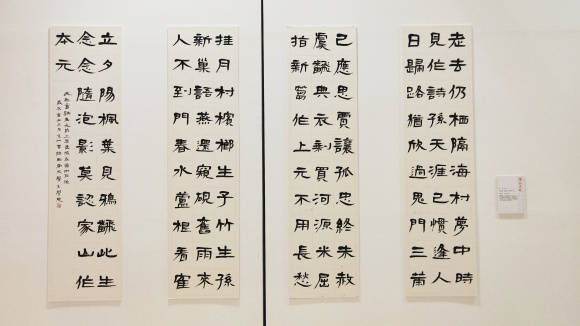 老去仍栖隔海村夢中時
見作詩孫天涯已慣逢人
日歸路猶欣過鬼門三策
已應思賈讓孤忠終未赦
虞飜典衣剩買河源米屈
指新篘作上元不用長愁
挂月村檳榔生子竹生孫
新巢語燕還窺硯舊雨來
人不到門春水蘆根看寉
立夕陽楓葉見鴉飜此生
念念隨泡影莫認家山作
本元